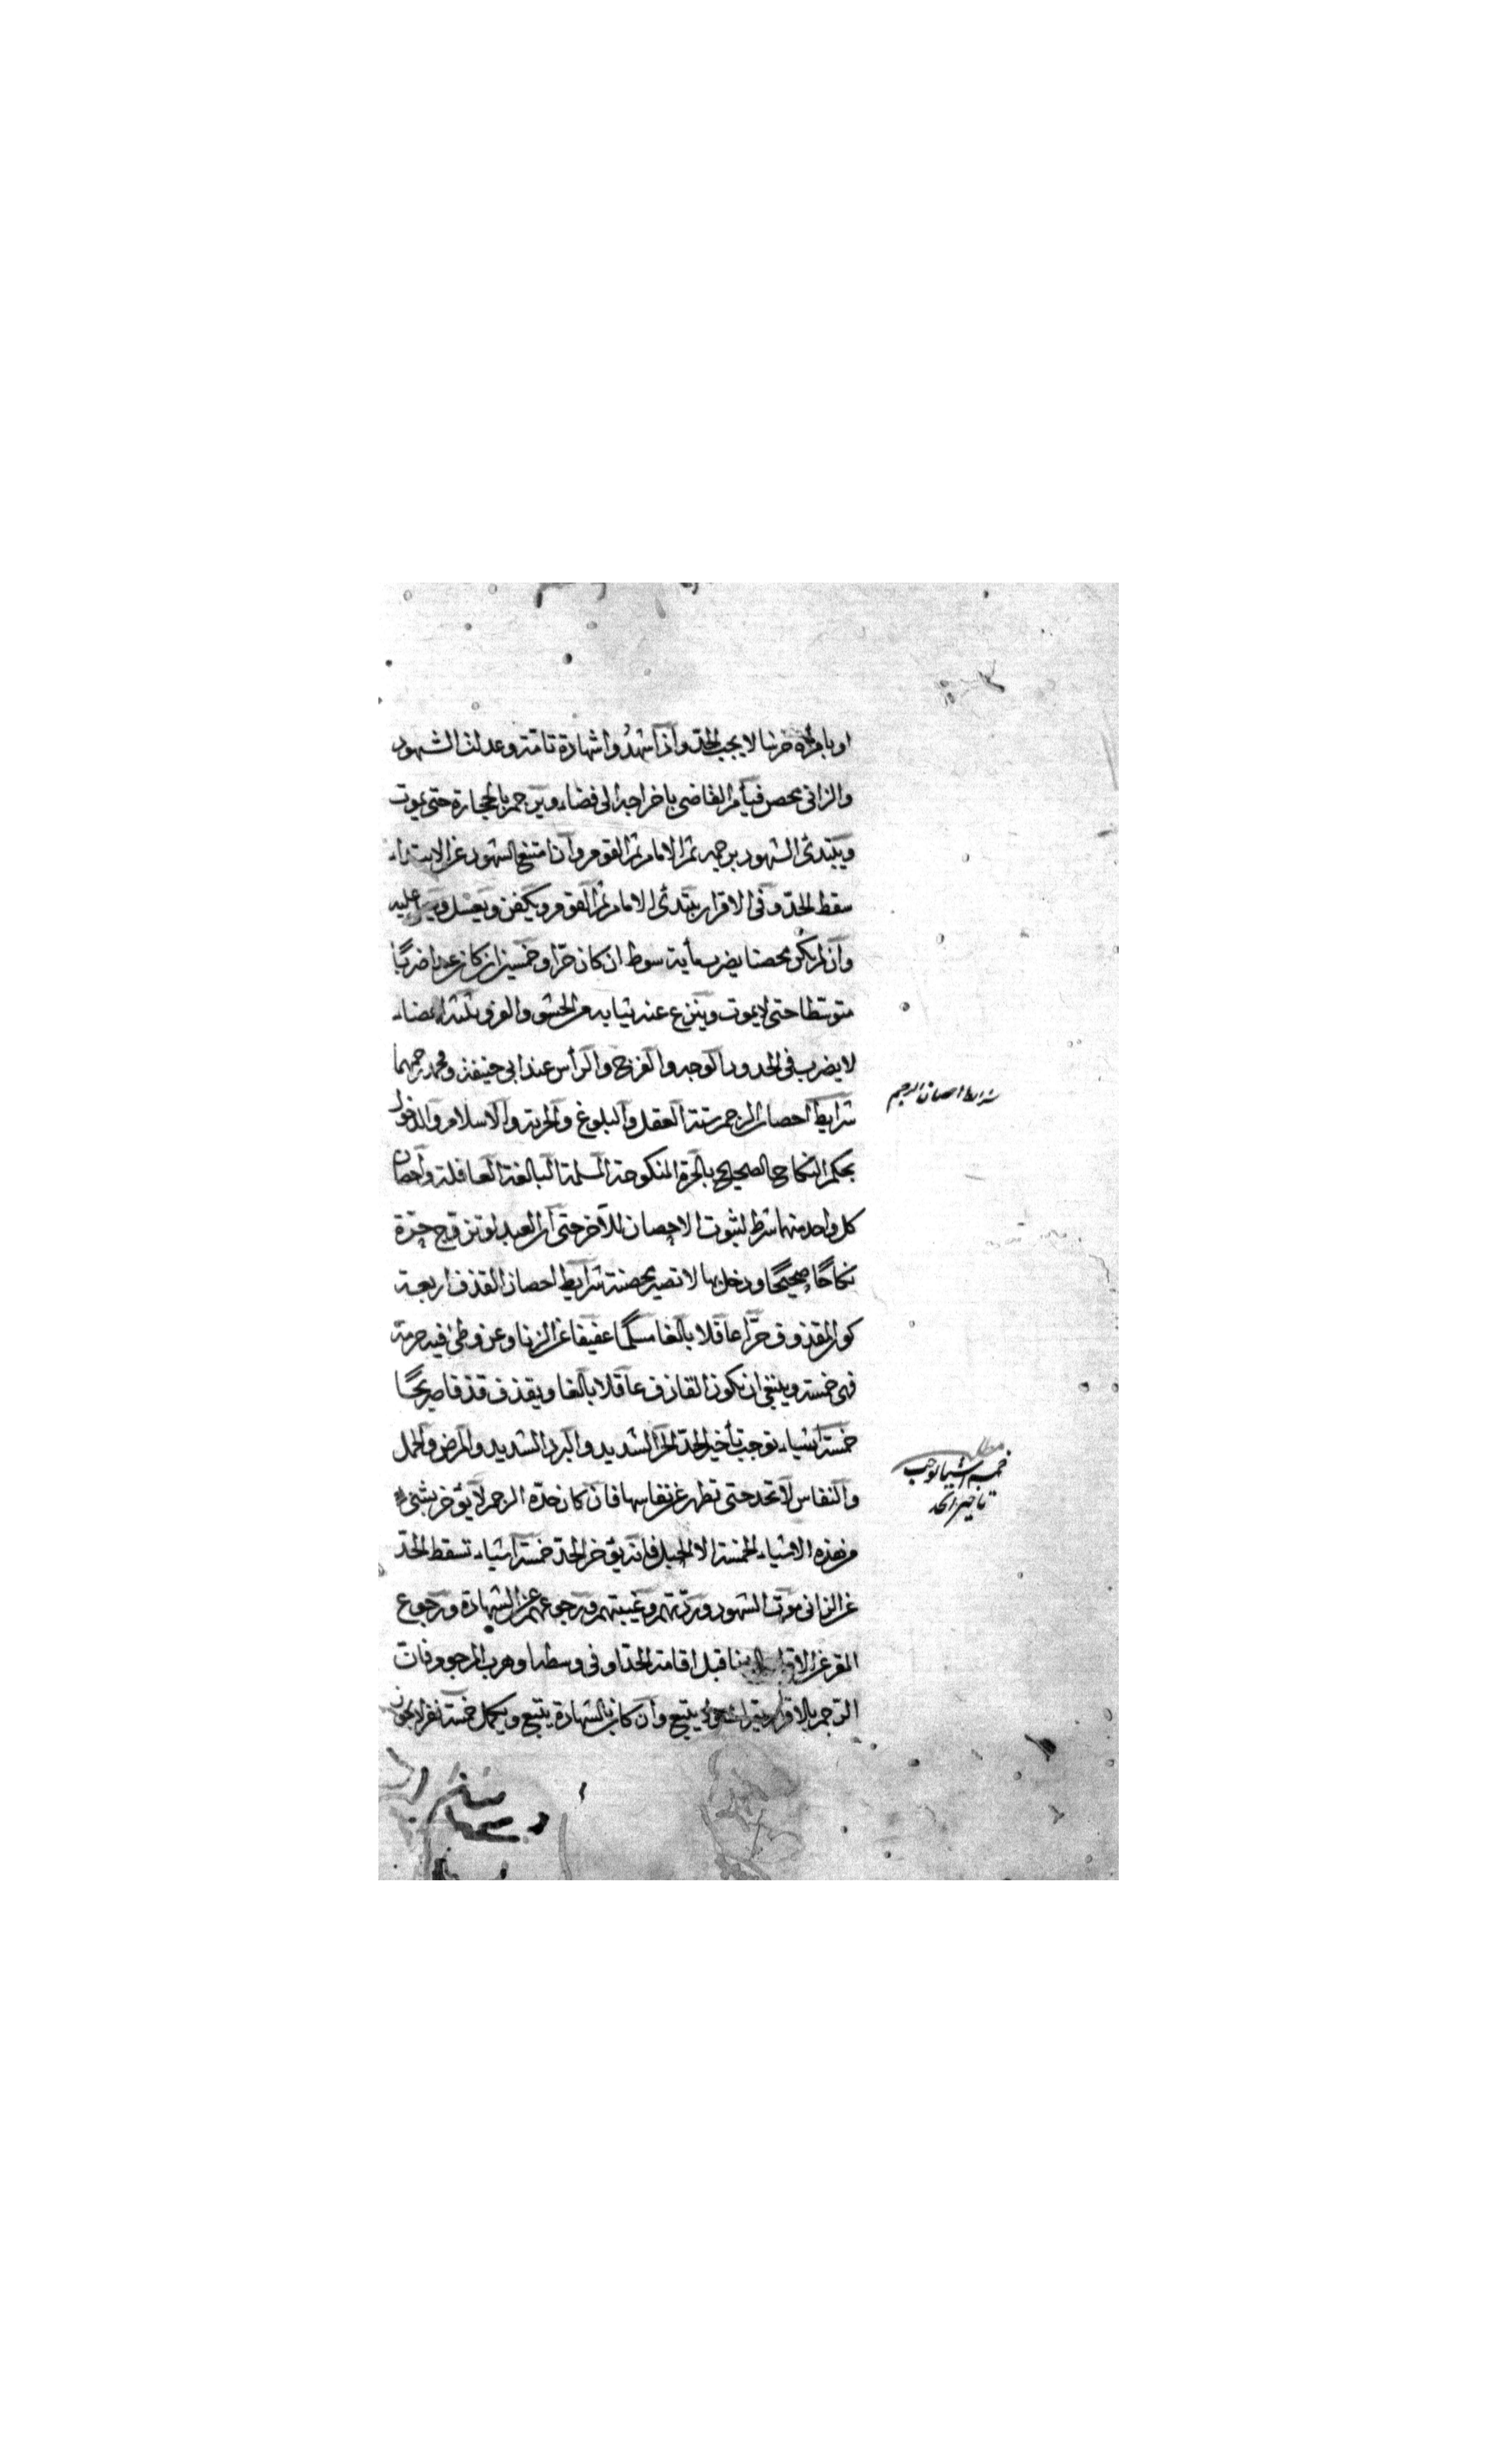 او بامرأة خرسا لا يجب الحدّ واذا شهدُوا شهادة تامّة وعدلت الشهود
والزانى محصن فيأمر القاضى باخراجه الى فضاء ويرجم بالحجارة حتى يموت
ويبتدئ الشهود برجمه ثم الامام ثم القوم وان امتنع الشهود عن الابتداء
سقط الحدّ وفى الاقرار يبتدئ الامام ثم القوم ويكفن ويغسل عليه
وان لم يكن محصنا يضرب مأية سوط ان كان حرّا وخمسين ان كان عبدا ضربًا
متوسّطا حتى لا يموت وينزع عنه ثيابه غير الحشو والفرو ثلثة اعضاء
لا يضرب فى الحدود الوجه والفرج والرأس عند ابى حنيفة ومحمد رحمهما
شرايط احصان الرجم ستة العقل والبلوغ والحرية والاسلام والدخول
بحكم النكاح الصحيح بالحرة المنكوحة المسلمة البالغة العاقلة واحصان
كل واحد منهما شرط لثبوت الاحصان للآخر حتى ان العبد لو تزوج حرّة
نكاحًا صحيحًا ودخل بها لا تصير محصنة شرايط احصان القذف اربعة
كون المقذوف حرّا عاقلا بالغا مسلما عفيفا عن الزنا وعن وطئ فيه حرمة
فهى خمسة وينبغى ان يكون القاذف عاقلا بالغا ويقذف قذفا صريحًا
خمسة اشياء توجب تأخير الحدّ الحرّ الشديد والبرد الشديد والمرض والحمل
والنفاس لا تحد حتى تطهر عن نفاسها فان كان حدّه الرجم لا يؤخر بشئ
من هذه الاشياء الخمسة الا الحبل فانه يؤخر الحدّ خمسة اشياء تسقط الحدّ
عن الزانى موت الشهود وردّتهم وغيبتهم ورجوعهم عن الشهادة ورجوع
المقر عن الاقرار بالزنا قبل اقامة الحدّ او فى وسطه او هرب المرجوم فان
الرجم بالاقرار يتبع وان كان بالشهادة يتبع ويكمل خمسة نفر لا يكون
شرايط احصان الرجم
مطلب
خمسة اشيا توجب
تاخير الحد